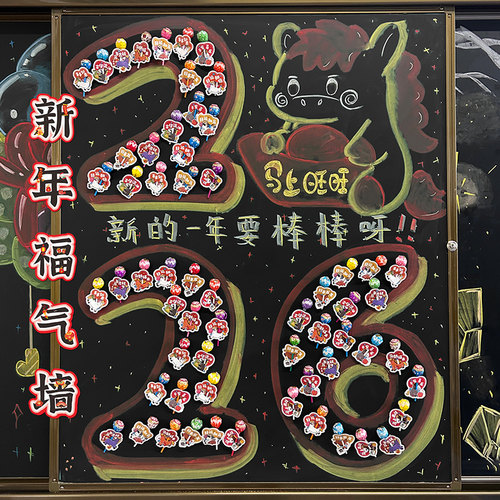 新年福气墙
2
马上旺旺
新的一年要棒棒呀!!
26